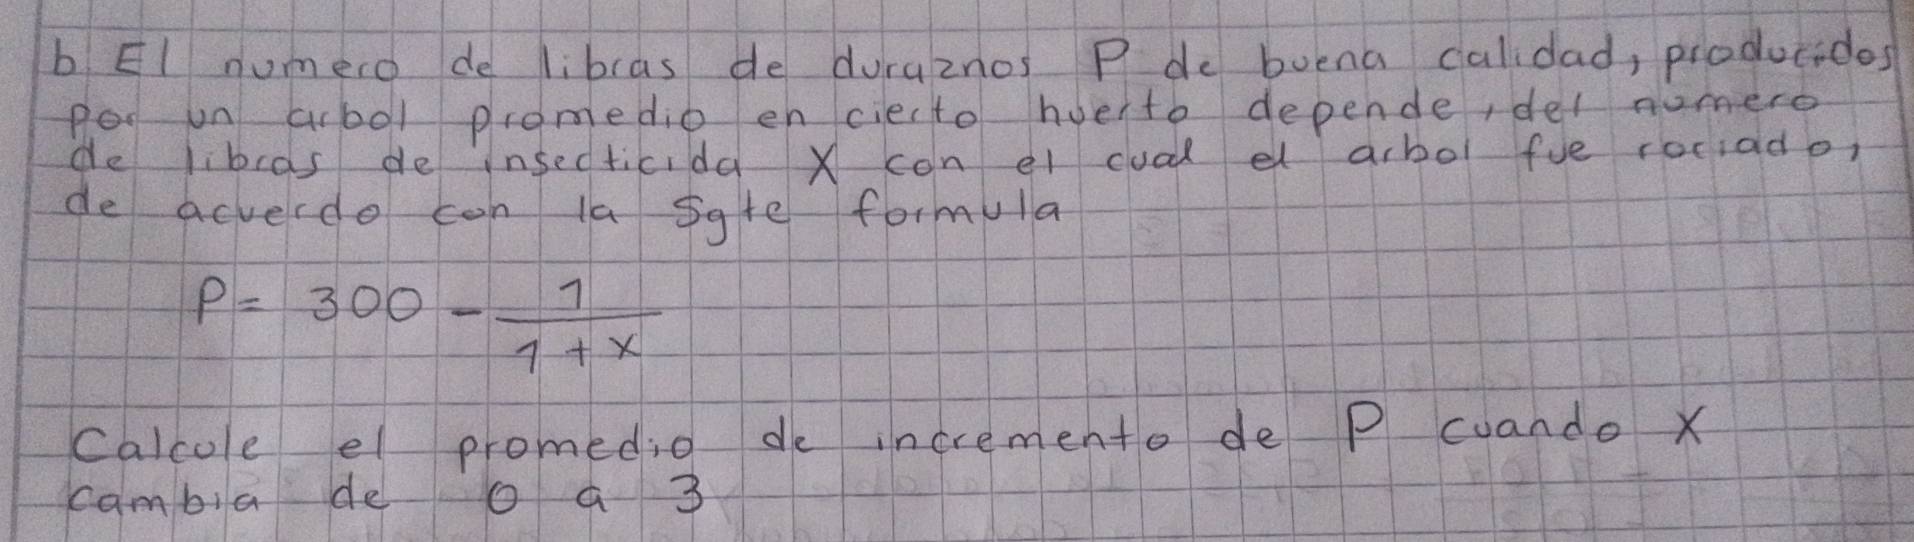 b El numero de libras de duraznos P de buena calidad, producidos
por un arbol promedio en cierto huerto depende, del numero
de libras de insecticida X con el cual el arbol fue rociado,
de acuerdo con la sgte formula
P = 300 - 1/(1 + x)
Calcule el promedio de incremento de P cuando X
cambia de 0 a 3